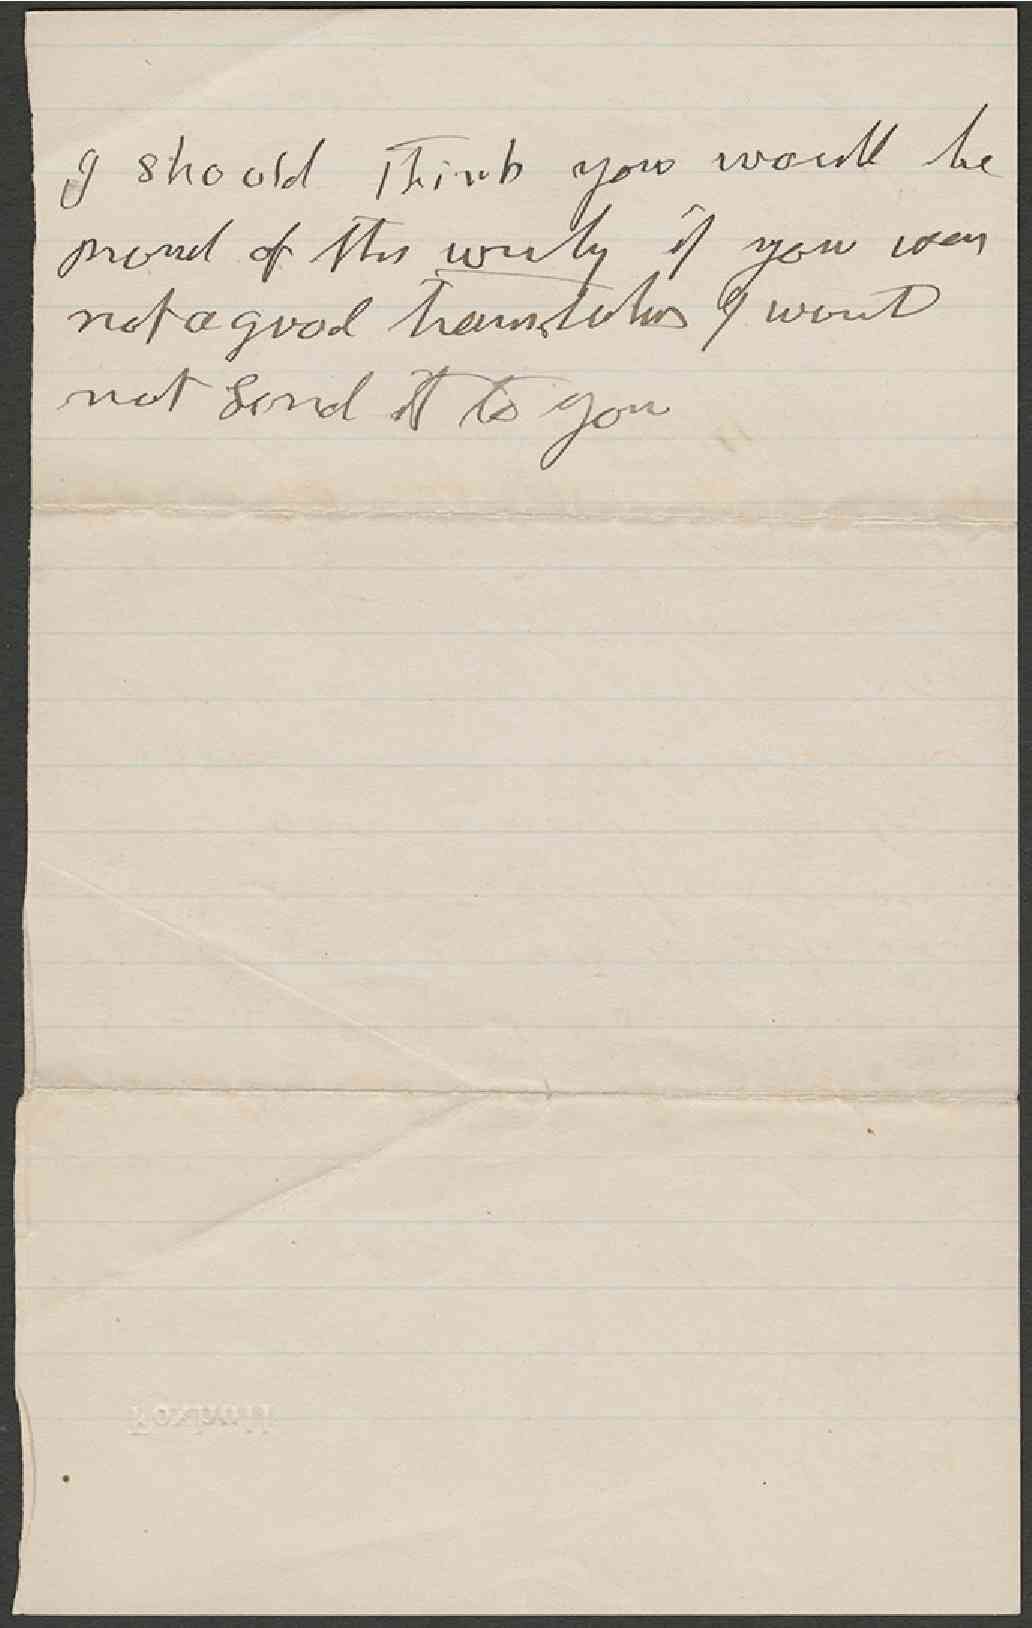 I should think you would be
proud of this if you was
not a good I would
not send it to you